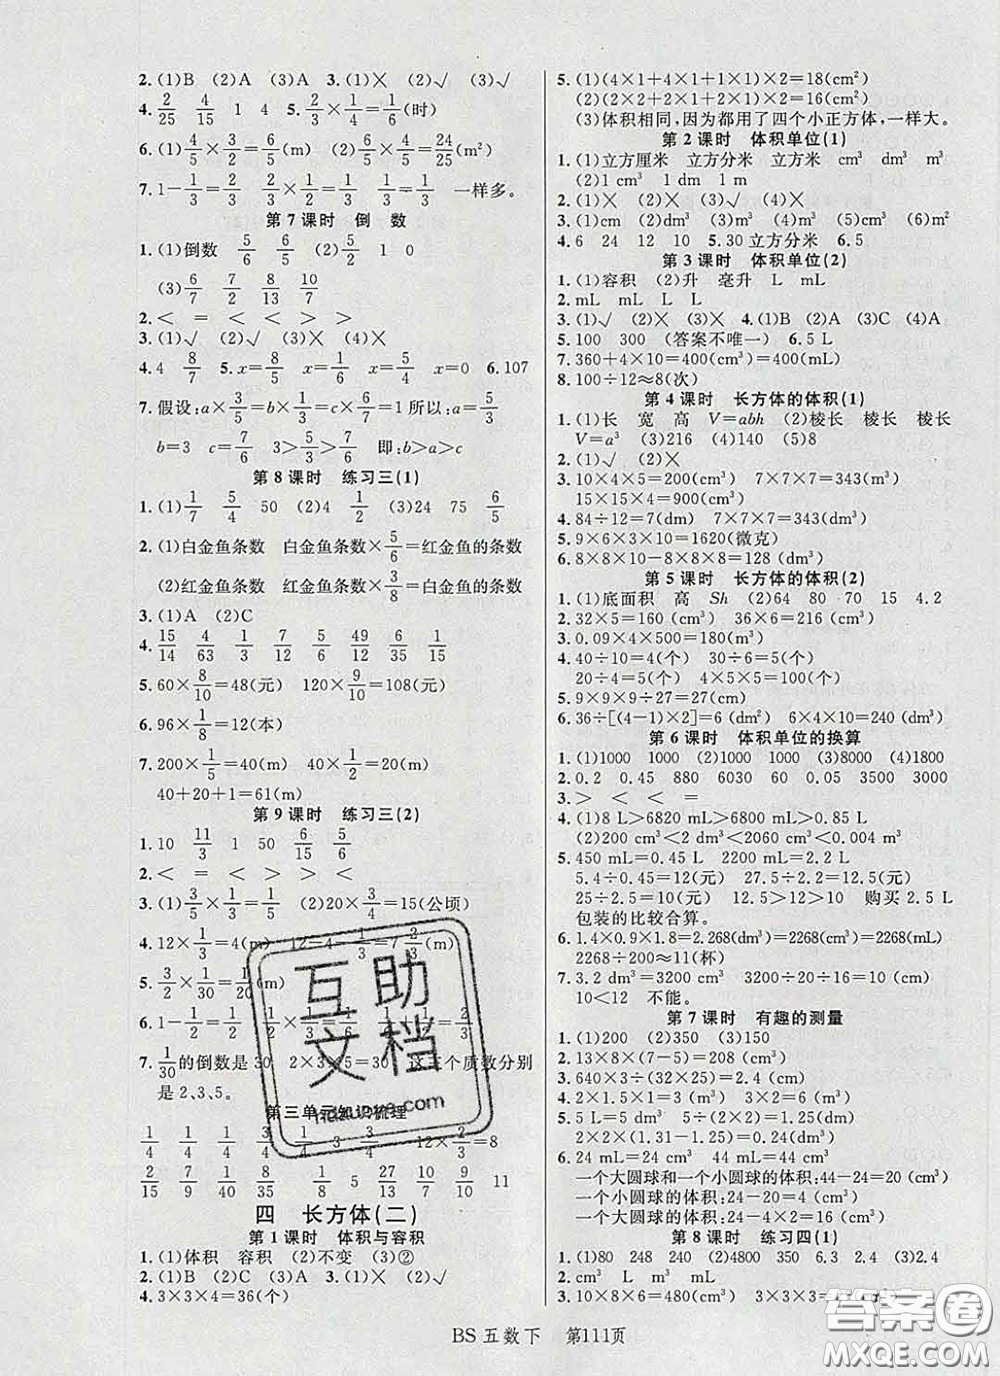 2.(1)B (2)A (3)A 3.(1)× (2)√ (3)√
4. 2/25 4/15 1 4 5. 2/3×1/4=1/6(时)
6.(1) 4/5×3/2=6/5(m) (2) 6/5×4/5=24/25(m²)
7. 1-1/3=2/3 2/3×1/2=1/3 1/3=1/3 一样多。
第7课时 倒 数
1.(1)倒数 5/6 6/5 (2)5/2 1 0
(3)6/7 7/2 8/13 10/7
2.< = < < > >
3.(1)√ (2)√ (3)× (4)√
4. 4 8/7 5.x=8/5 x=1/4 x=5/4 6.107
7.假设:a×3/5=b×1/3=c×6/7=1所以:a=5/3
b=3 c=7/6 3>5/3>7/6 即:b>a>c
第8课时 练习三(1)
1.(1)1/7 5/4 50 (2)4 1/2 (3)24 75 6/5
2.(1)白金鱼条数 白金鱼条数×5/6=红金鱼的条数
(2)红金鱼条数 红金鱼条数×3/8=白金鱼的条数
3.(1)A (2)C
4. 15/14 4/63 1/3 1/2 5/6 49/12 6/35 11/15
5. 60×8/10=48(元) 120×9/10=108(元)
6. 96×1/8=12(本)
7. 200×1/5=40(m) 40×1/2=20(m)
40+20+1=61(m)
第9课时 练习三(2)
1. 10 11/3 1 50 6/15 5/6
2.< = < > > <
3.(1)3/5×1/3=1/5(公顷) (2)20×3/4=15(公顷)
4. 12×1/3=4(m) 12-4-1/3=7 2/3(m)
5.
6. 1-1/2=1/2
7. 1/30的倒数是30 2×3×5=30 这三个质数分别
是2、3、5。
第三单元知识梳理
1/4 1/4
2/15 7/9 10/7 8/9 5/16 27/40 13/10 9/10 11
四 长方体(二)
第1课时 体积与容积
1.(1)体积 容积 (2)不变 (3)②
2.(1)B (2)C (3)A 3.(1)× (2)√
4. 3×3×4=36(个)
5.(1)(4×1+4×1+1×1)×2=18(cm²)
(2)(2×2+2×1+2×1)×2=16(cm²)
(3)体积相同,因为都用了四个小正方体,一样大。
第2课时 体积单位(1)
1.(1)立方厘米 立方分米 立方米 cm³ dm³ m³
(2)1 cm³ 1 dm 1 m
2.(1)× (2)× (3)√ (4)×
3.(1)cm (2)dm³ (3)m³ (4)cm³ (5)cm² (6)m³
4. 6 24 12 10 5.30立方分米 6.5
第3课时 体积单位(2)
1.(1)容积 (2)升 毫升 L mL
2.mL mL L L
3.(1)√ (2)× (3)× 4.(1)B (2)A (3)C (4)A
5.100 300 (答案不唯一) 6.5 L
7.360+4×10=400(cm³)=400(mL)
8.100÷12≈8(次)
第4课时 长方体的体积(1)
1.(1)长 宽 高 V=abh (2)棱长 棱长 棱长
V=a³ (3)216 (4)140 (5)8
2.(1)√ (2)×
3.10×4×5=200(cm³) 7×7×7=343(cm³)
15×15×4=900(cm³)
4.84÷12=7(dm) 7×7×7=343(dm³)
5.9×6×3×10=1620(微克)
6.8×8×10-8×8×8=128 (dm³)
第5课时 长方体的体积(2)
1.(1)底面积 高 Sh (2)64 80 70 15 4.2
2.32×5=160 (cm³) 36×6=216 (cm³)
3.0.09×4×500=180(m³)
4.40÷10=4(个) 30÷6=5(个)
20÷4=5(个) 4×5×5=100(个)
5.9×9×9÷27=27(cm)
6.36÷[(4-1)×2]=6 (dm²) 6×4×10=240 (dm³)
第6课时 体积单位的换算
1.(1)1000 1000 (2)1000 1000 (3)8000 (4)1800
2.0.2 0.45 880 6030 60 0.05 3500 3000
3.> < < =
4.(1)8 L>6820 mL>6800 mL>0.85 L
(2)200 cm³<2 dm³<2060 cm³<0.004 m³
5.450 mL=0.45 L 2200 mL=2.2 L
5.4÷0.45=12(元) 27.5÷2.2=12.5(元)
25÷2.5=10(元) 12.5>12>10 购买2.5 L
包装的比较合算。
6.1.4×0.9×1.8=2.268(dm³)=2268(cm³)=2268(mL)
2268÷200≈11(杯)
7.3.2 dm³=3200 cm³ 3200÷20÷16=10(cm)
10<12 不能。
第7课时 有趣的测量
1.(1)200 (2)350 (3)150
2.13×8×(7-5)=208 (cm³)
3.640×3÷(40×20)=2.4 (cm)
4.2×2×1.5÷2=3(cm³) 1.5×6=9(cm³)
5.5 L=5 dm³ 5÷(2×2)=1.25(dm)
2×2×(1.31-1.25)=0.24(dm³)
6.24 mL=24 cm³ 44 mL=44 cm³
一个大圆球和一个小圆球的体积:44-24=20 (cm³)
一个小圆球的体积:24-20=4 (cm³)
一个大圆球的体积:20-4=16 (cm³)
第8课时 练习四(1)
1.(1)80 248 240 (2)4800 350 6.3 2.4
2.cm³ L m³ m³ mL dm³
3.10×8×6=480(cm³)
BS五数下 第111页
互助
文档
答案圈
MXQE.COM